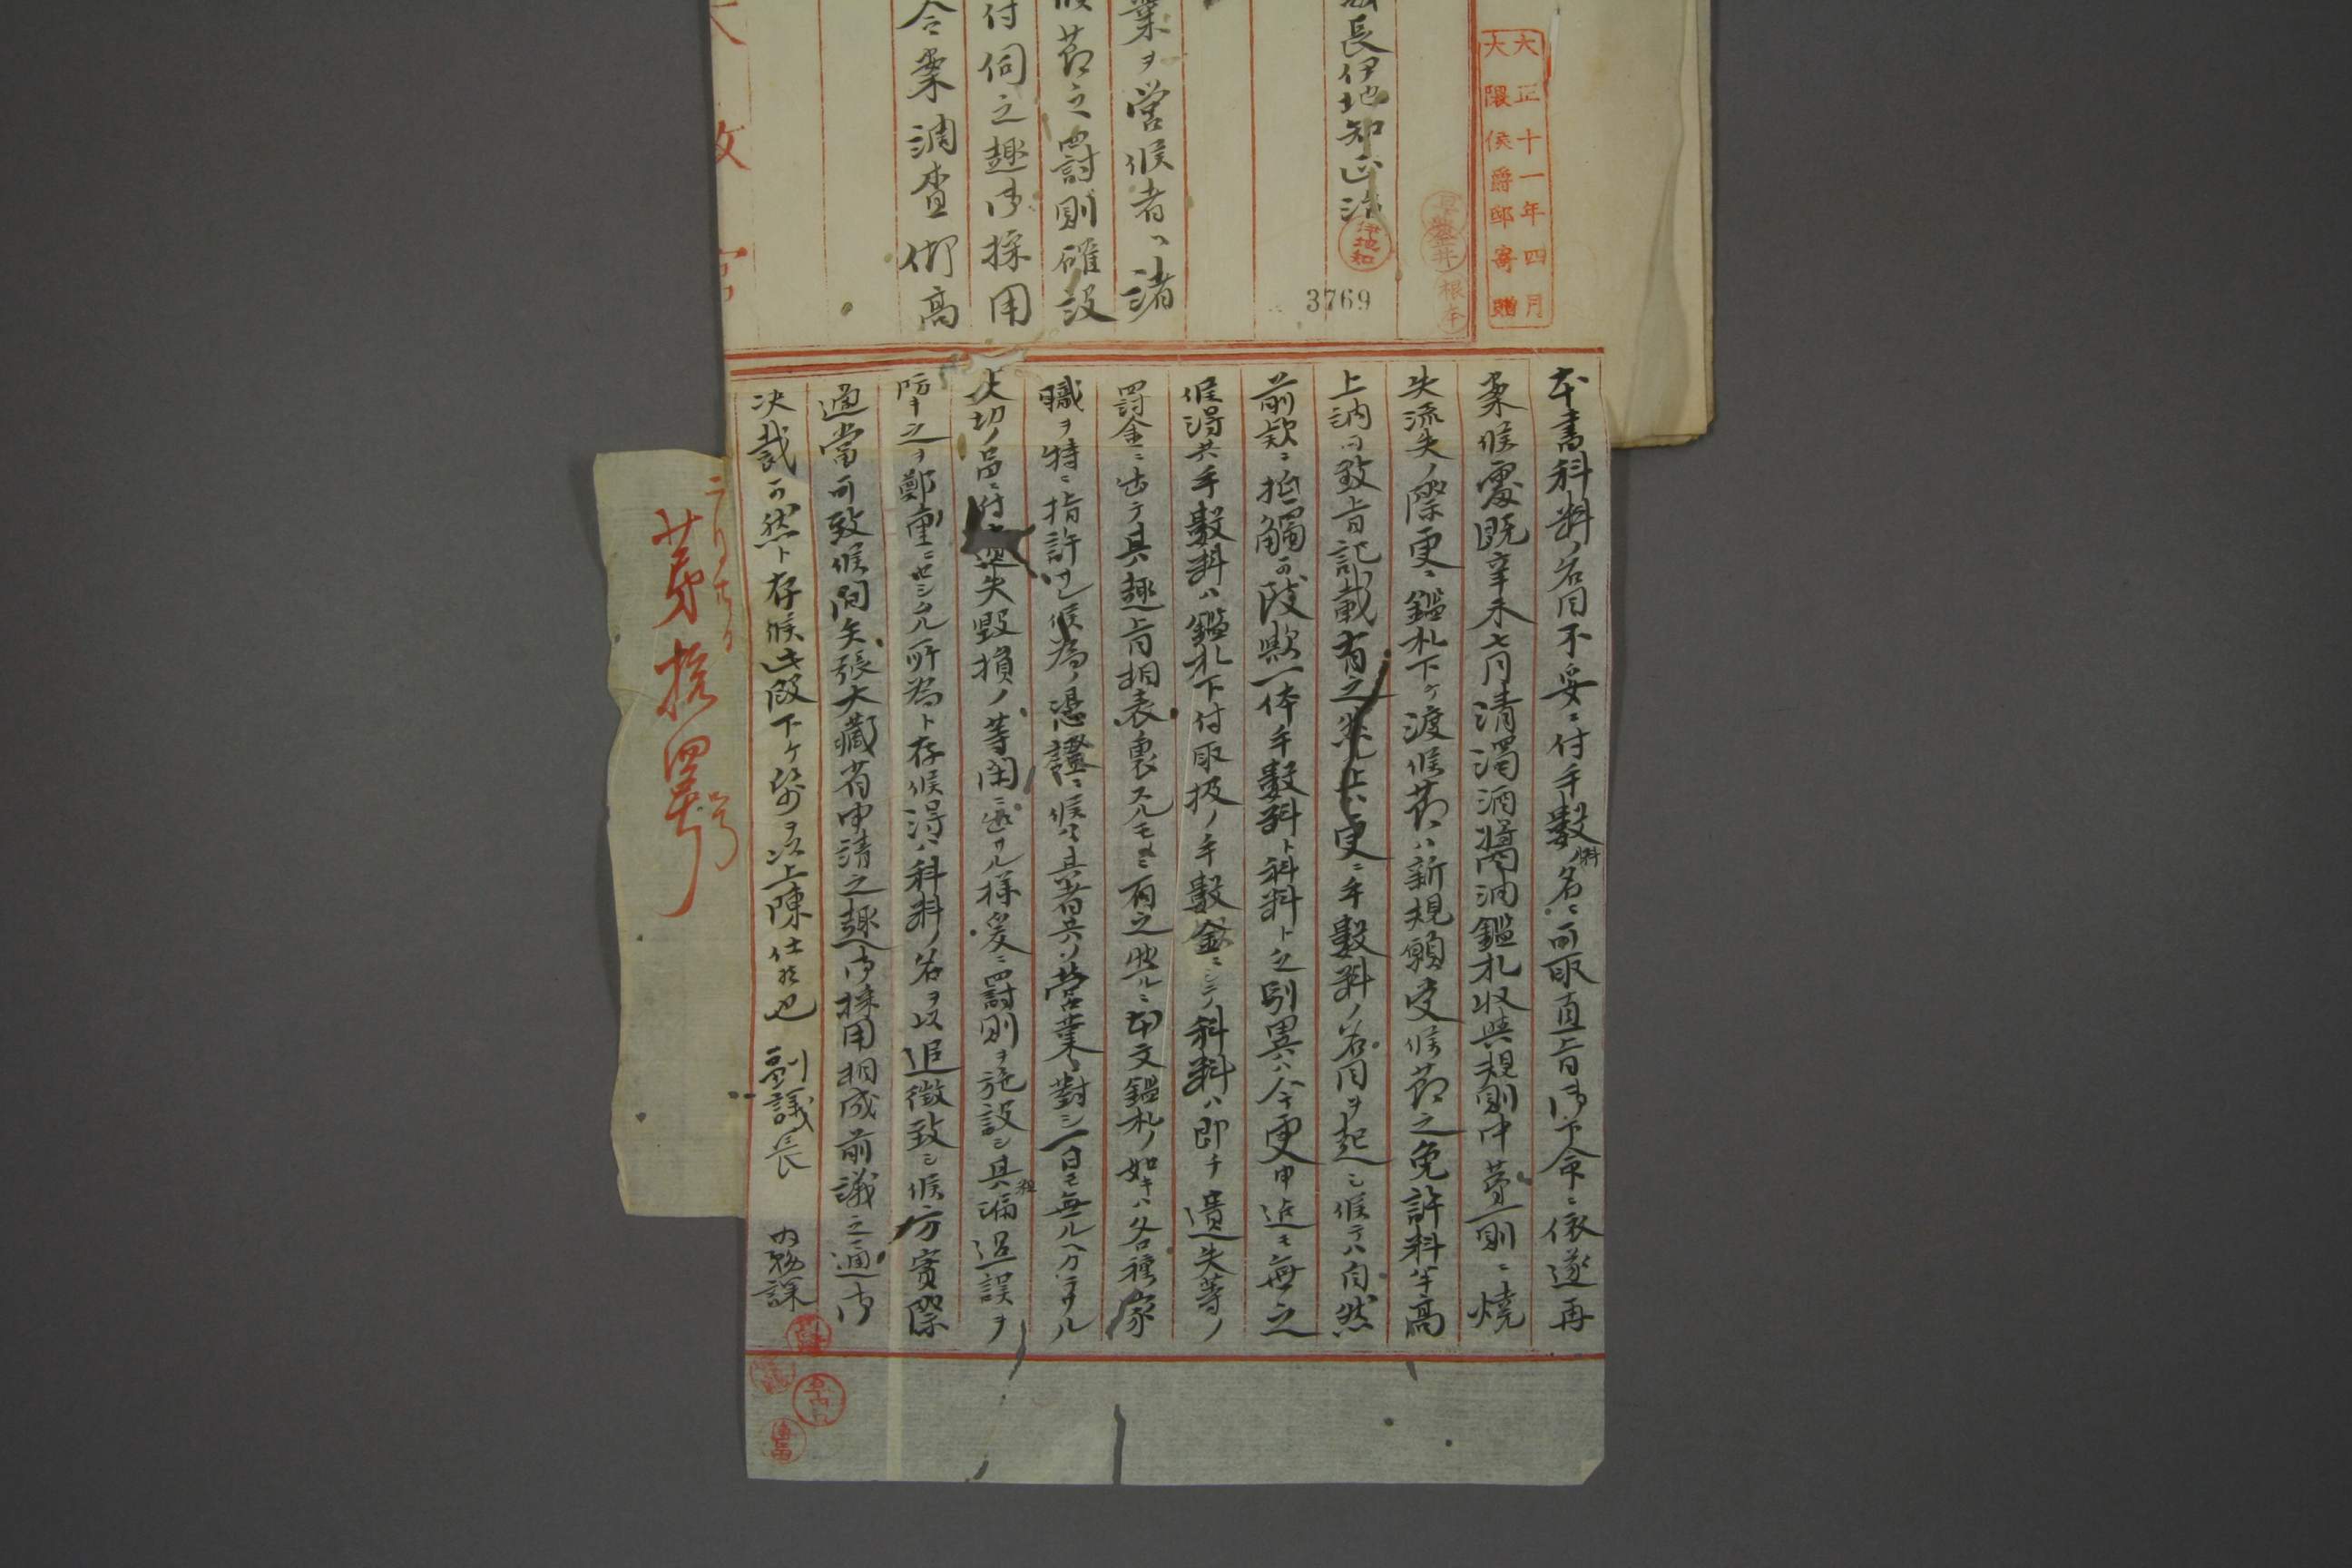 大正十一年四月
大隈侯爵邸寄贈
長伊地知正治
伊地知
3769
業ヲ営候者ヘ諸
候節之罰則確設
付伺之趣御採用
令案調査仰高
本書科料ノ名目不妥ニ付手数料ノ名ニ可取直旨御下命ニ依遂再
案候處既辛未七月清濁酒醬油鑑札収與規則中第一則ニ焼
失流失ノ際更ニ鑑札下ケ渡候節ハ新規願受候節之免許料半高
上納可致旨記載有之然上ハ更ニ手數料ノ名目ヲ起シ候テハ自然
前款ニ抵觸可致歟一体手數料ト科料ト之別異ハ今更申迄モ無之
候得共手數料ハ鑑札下付取扱ノ手數金ニシテ科料ハ即チ遺失等ノ
罰金ニ出テ其趣旨相表裏スルモノニ有之然ルニ本文鑑札ノ如キハ各種家
職ヲ特ニ指許サレ候為ノ憑證ニ候ヘハ其者共ノ営業ニ對シ一日モ無ルヘカラサル
大切ノ品ニ付遺失毀損ノ等閑ニ出サル様爰ニ罰則ヲ施設シ其漏迅誤ヲ
防キ之ヲ鄭重ニセシムル所為ト存候得ハ科料ノ名ヲ以追徴致シ候方實際
適當可致候間矢張大藏省申請之趣御採用相成前議之通御
决裁可然ト存候此段下ケ紙ヲ以上陳仕候也 副議長 内務課
第拾四号